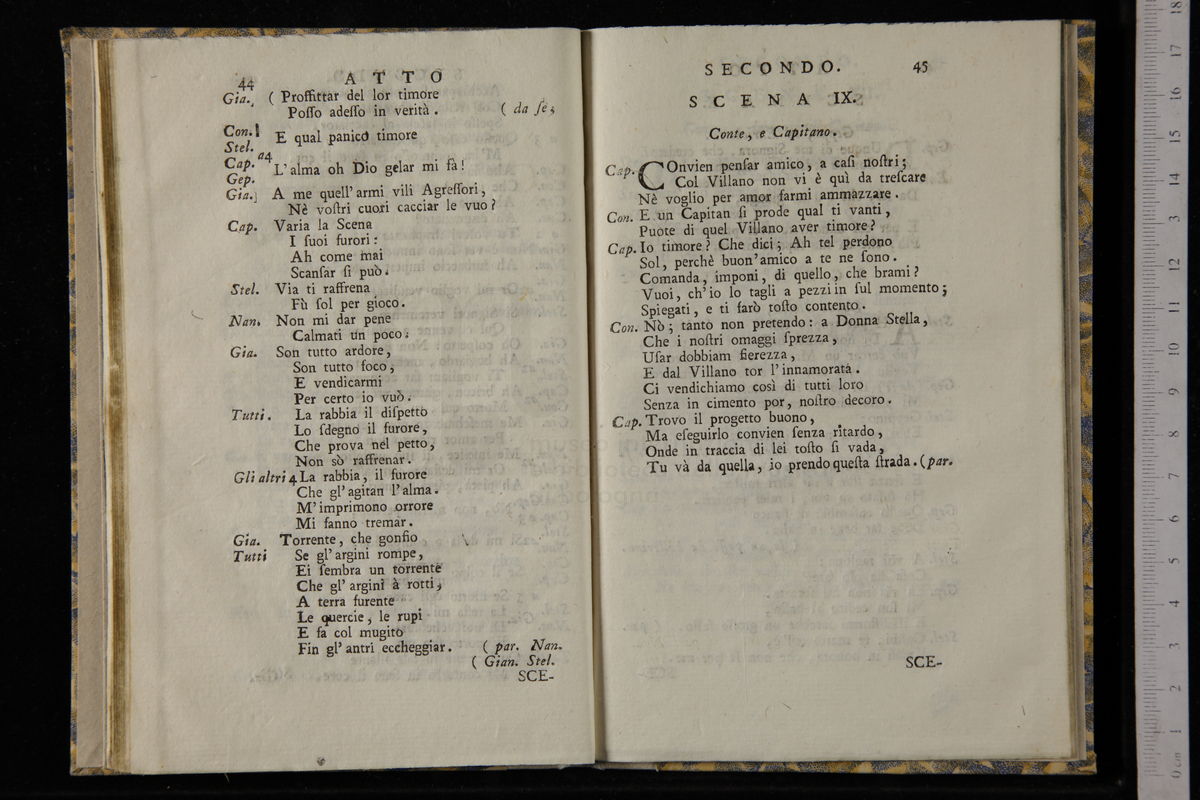 44 ATTO
Gia. ( Proffittar del lor timore
Poſſo adeſſo in verità. ( da ſe;
Con.
Stel. E qual panico timore
Cap. a4
Gep. L'alma oh Dio gelar mi fà!
Gia. A me quell'armi vili Agreſſori,
Nè voſtri cuori cacciar le vuo?
Cap. Varia la Scena
I ſuoi furori:
Ah come mai
Scanſar ſi può.
Stel. Via ti raffrena
Fù ſol per gioco.
Nan. Non mi dar pene
Calmati un poco.
Gia. Son tutto ardore,
Son tutto foco,
E vendicarmi
Per certo io vuò.
Tutti. La rabbia il diſpetto
Lo ſdegno il furore,
Che prova nel petto,
Non sò raffrenar.
Gli altri 4 La rabbia, il furore
Che gl'agitan l'alma.
M'imprimono orrore
Mi fanno tremar.
Gia. Torrente, che gonfio
Tutti Se gl'argini rompe,
Ei ſembra un torrente
Che gl'argini à rotti,
A terra furente
Le quercie, le rupi
E fa col mugito
Fin gl'antri eccheggiar. ( par. Nan.
( Gian. Stel.
SCE-
SECONDO. 45
SCENA IX.
Conte, e Capitano.
Cap. COnvien penſar amico, a caſi noſtri;
Col Villano non vi è quì da treſcare
Nè voglio per amor farmi ammazzare.
Con. E un Capitan ſi prode qual ti vanti,
Puote di quel Villano aver timore?
Cap. Io timore? Che dici; Ah tel perdono
Sol, perchè buon'amico a te ne ſono.
Comanda, imponi, di quello, che brami?
Vuoi, ch'io lo tagli a pezzi in ſul momento;
Spiegati, e ti farò toſto contento.
Con. Nò; tanto non pretendo: a Donna Stella,
Che i noſtri omaggi ſprezza,
Uſar dobbiam fierezza,
E dal Villano tor l'innamorata.
Ci vendichiamo così di tutti loro
Senza in cimento por, noſtro decoro.
Cap. Trovo il progetto buono,
Ma eſeguirlo convien ſenza ritardo,
Onde in traccia di lei toſto ſi vada,
Tu và da quella, io prendo queſta ſtrada. (par.
SCE-